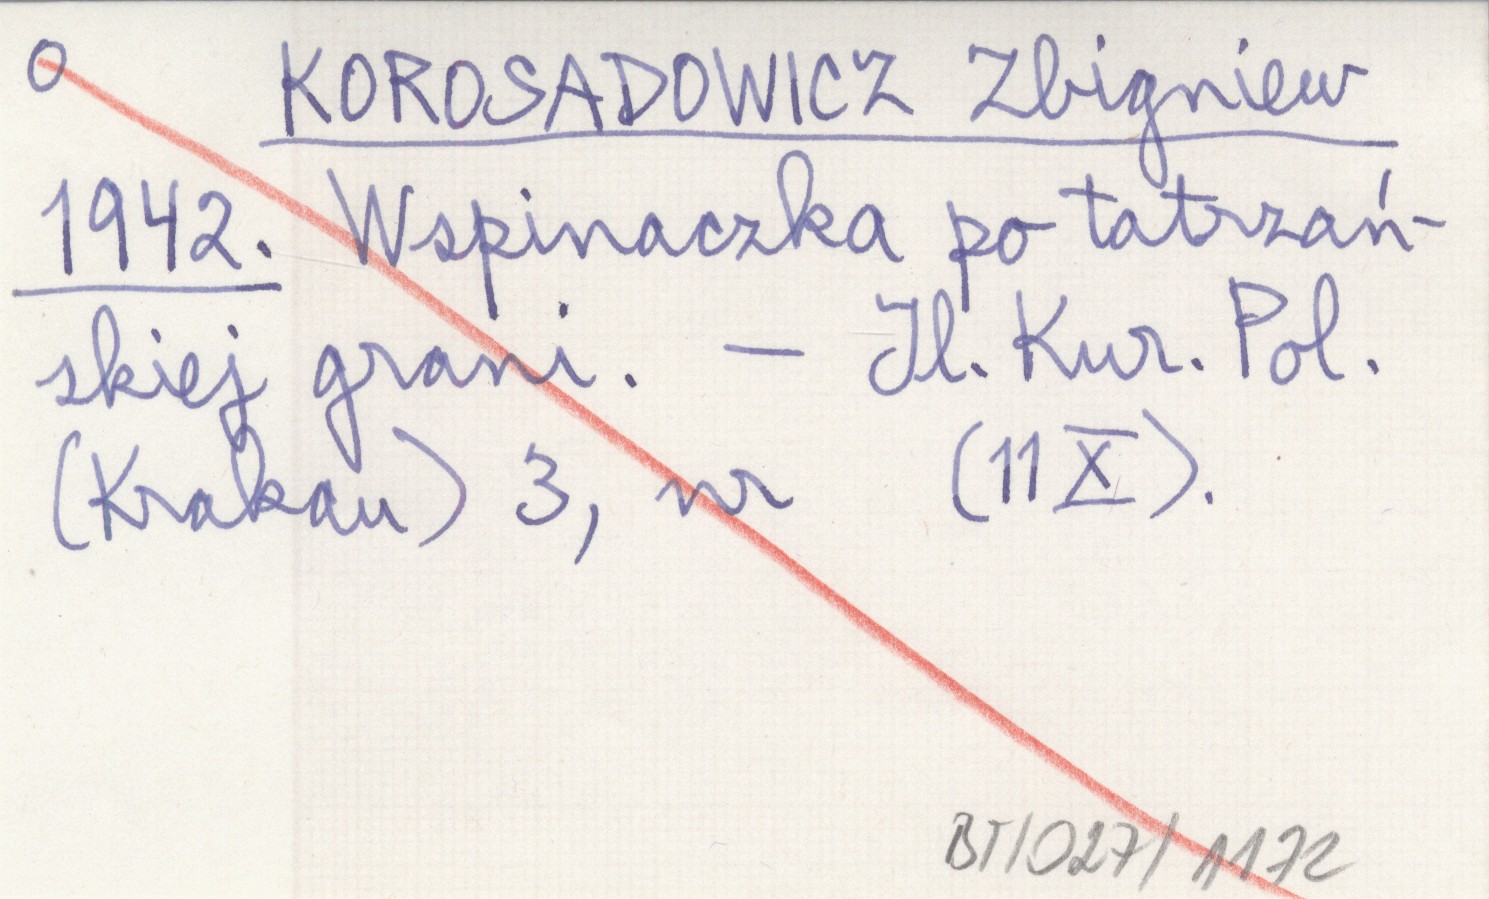 O KOROSADOWICZ Zbigniew
1942. Wspinaczka po tatrzań-
skiej grani. — Il. Kur. Pol.
(Krakau) 3, nr (11 X).
BT/027/1172